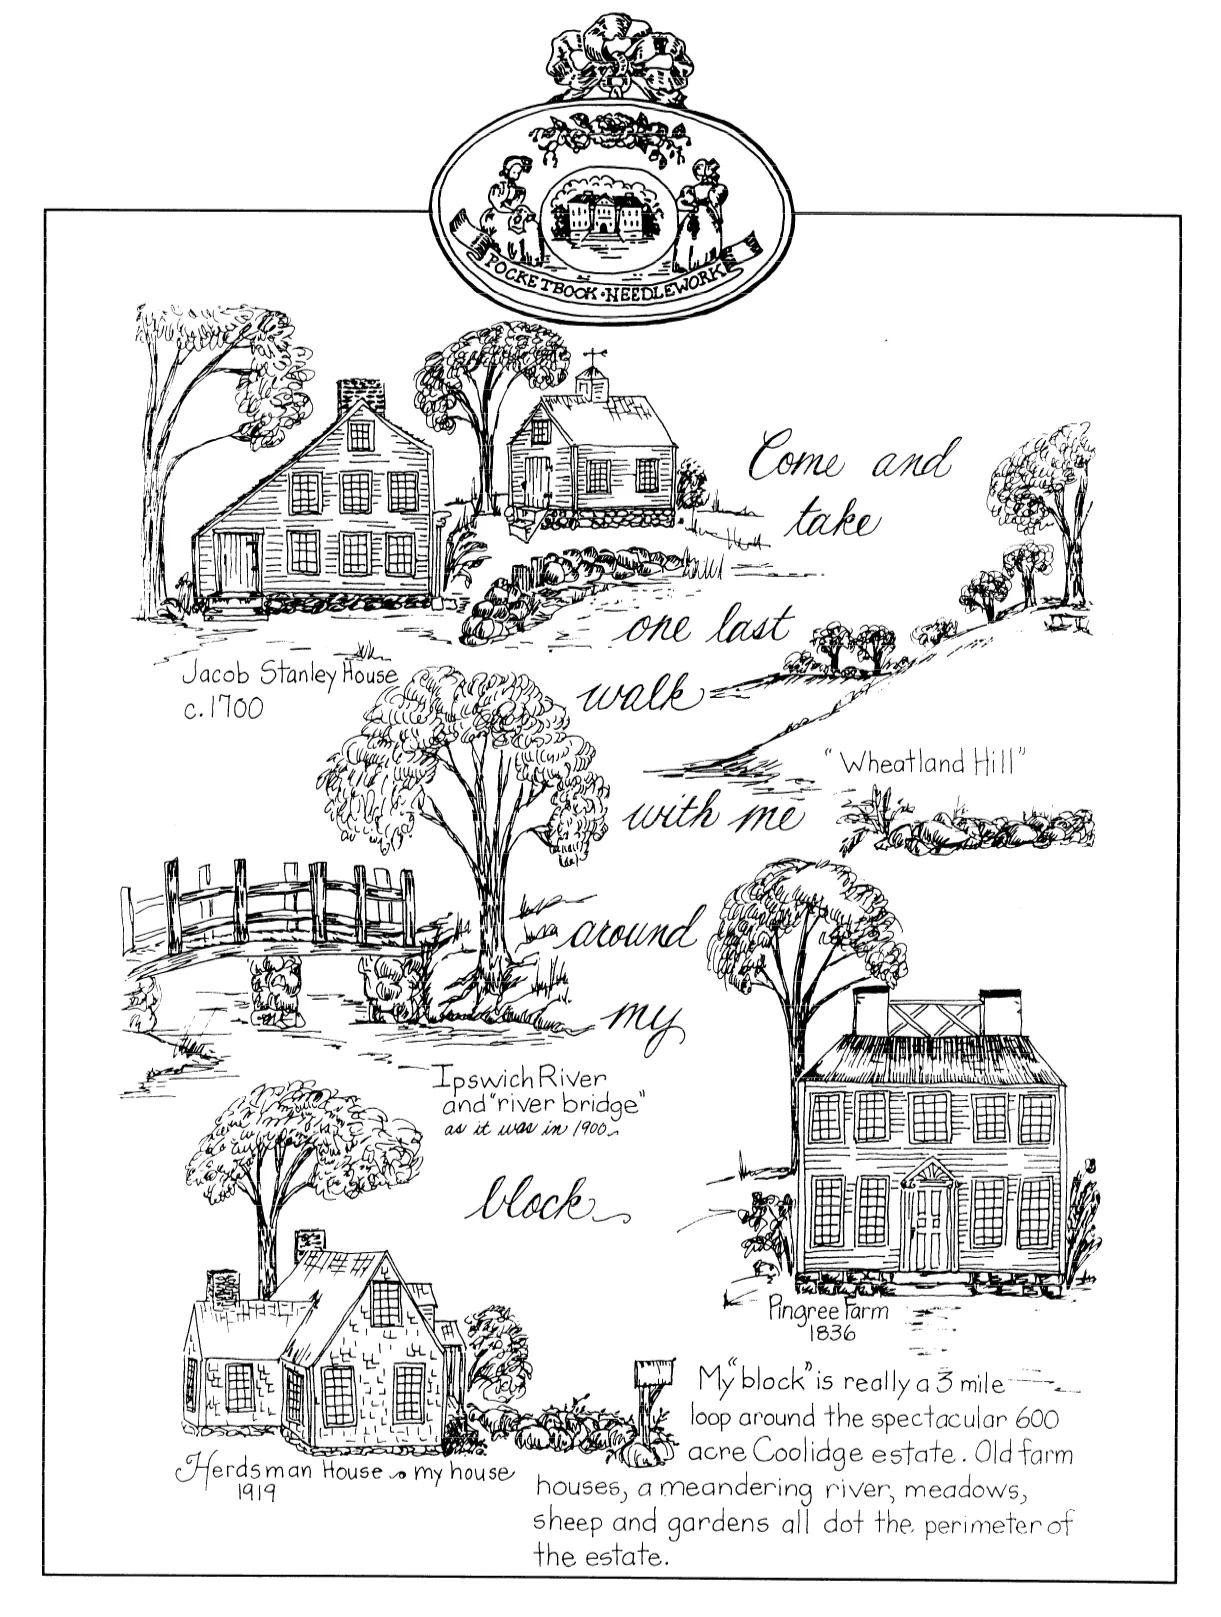 POCKETBOOK·NEEDLEWORK
Come and
take
one last
walk
Jacob Stanley House
c.1700
"Wheatland Hill"
with me
around
my
Ipswich River
and "river bridge"
as it was in 1900
block
Pingree Farm
1836
Herdsman House ~ my house
1919
My "block" is really a 3 mile
loop around the spectacular 600
acre Coolidge estate. Old farm
houses, a meandering river, meadows,
sheep and gardens all dot the perimeter of
the estate.